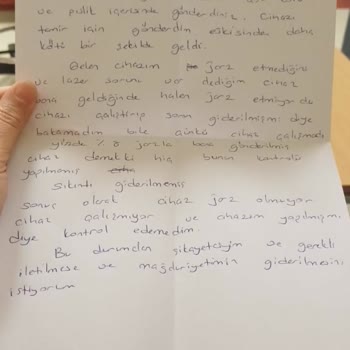 ve pislik içerisinde gönderdiniz. Cihazı
tamir için gönderdim eskisinden daha
kötü bir şekilde geldi.
Gelen cihazım şarj etmediğini
ve lazer sorunu var dediğim cihaz
bana geldiğinde halen şarj etmiyor da
cihazı çalıştırıp sorun giderilmişmi diye
bakamadım bile çünkü cihaz çalışmadı
yüzde %8 şarjla bana gönderilmiş
cihaz demekki hiç bunun kontrolü
yapılmamış
Sıkıntı giderilmemiş
sonuç olarak cihaz şarj olmuyor
cihaz çalışmıyor ve cihazım yapılmışmı
diye kontrol edemedim.
Bu durumdan şikayetçiyim ve gerekli
iletilmese ve mağduriyetimin giderilmesini
istiyorum